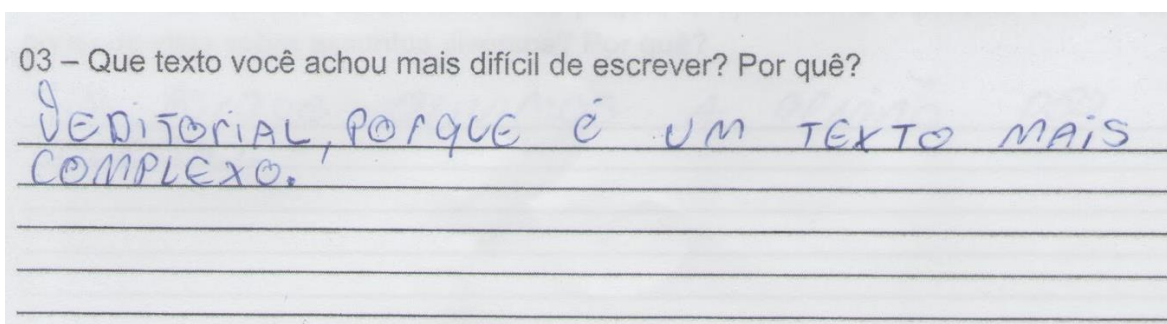 03 – Que texto você achou mais difícil de escrever? Por quê?
O EDITORIAL, PORQUE É UM TEXTO MAIS
COMPLEXO.